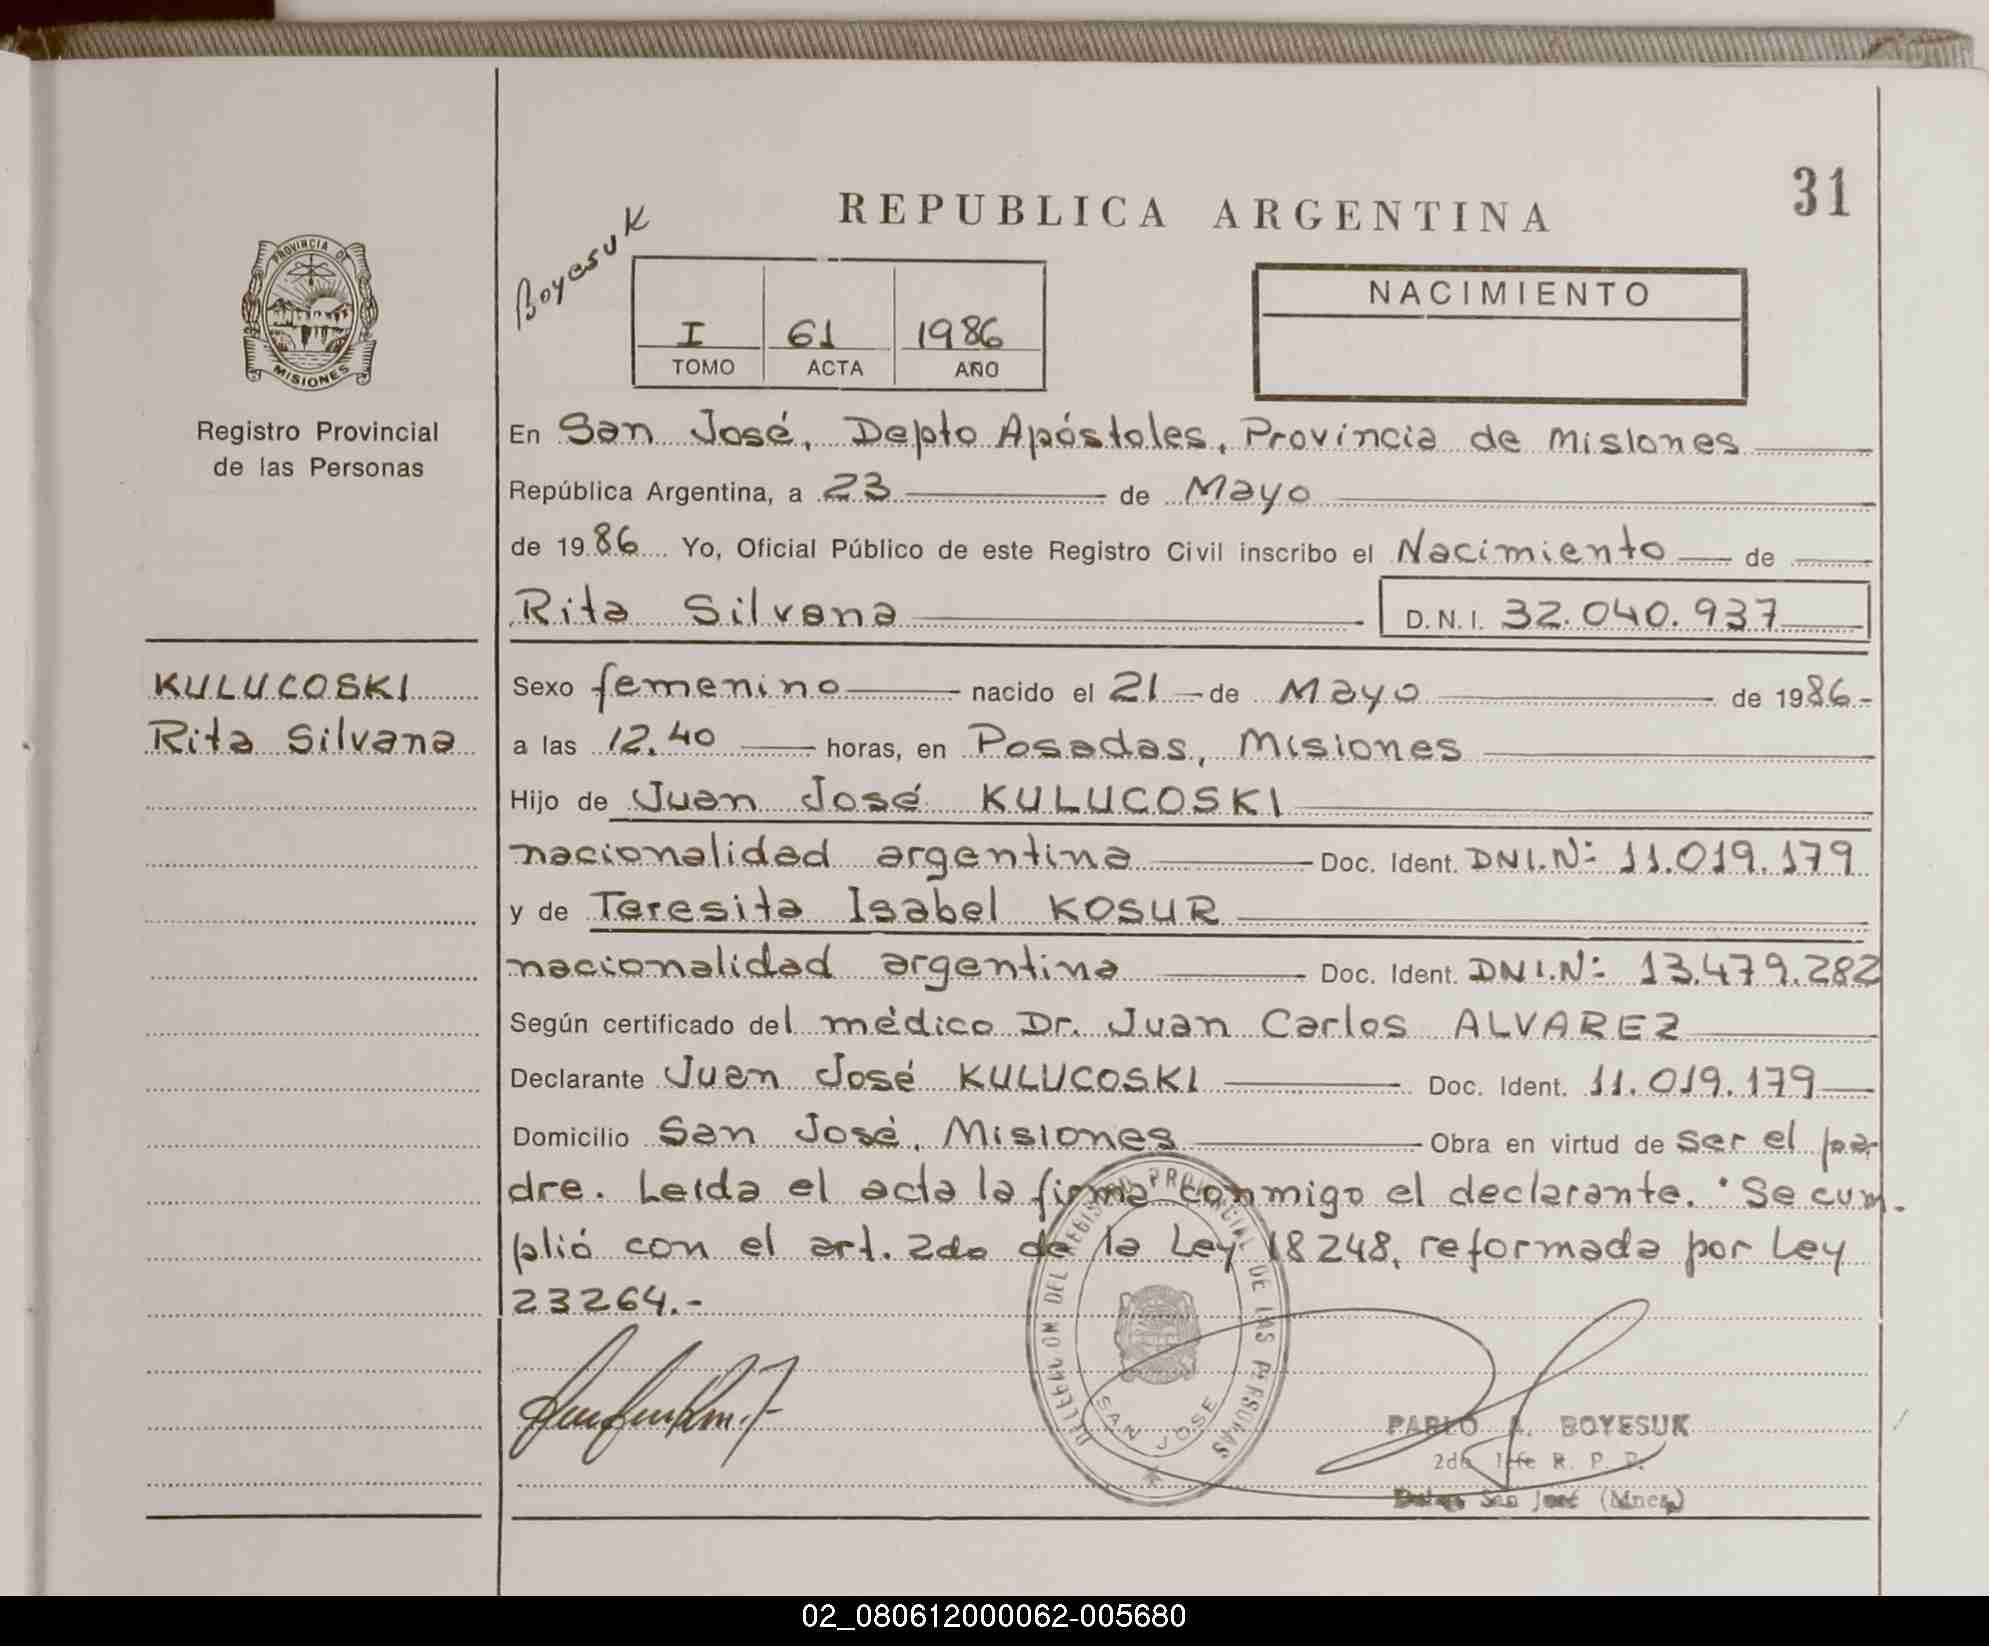 31
REPUBLICA ARGENTINA
Boyesuk
PROVINCIA DE
MISIONES
I 61 1986
TOMO ACTA AÑO
NACIMIENTO
Registro Provincial
de las Personas
En San José, Depto Apóstoles, Provincia de Misiones
República Argentina, a 23 de Mayo
de 1986 Yo, Oficial Público de este Registro Civil inscribo el Nacimiento de
Rita Silvana D.N.I. 32.040.937
KULUCOSKI
Rita Silvana
Sexo femenino nacido el 21 de Mayo de 1986.-
a las 12.40 horas, en Posadas, Misiones
Hijo de Juan José KULUCOSKI
nacionalidad argentina Doc. Ident. DNI.Nº 11.019.179
y de Teresita Isabel KOSUR
nacionalidad argentina Doc. Ident. DNI.Nº 13.479.282
Según certificado del médico Dr. Juan Carlos ALVAREZ
Declarante Juan José KULUCOSKI Doc. Ident. 11.019.179
Domicilio San José, Misiones Obra en virtud de ser el pa-
dre. Leída el acta la firma conmigo el declarante. Se cum-
plió con el art. 2do de la Ley 18248, reformada por Ley
23264.-
DEL REGISTRO PROVINCIAL DE LAS PERSONAS
SAN JOSE
PABLO A. BOYESUK
2do Jefe R. P. P.
San José (Mnes)
02_080612000062-005680